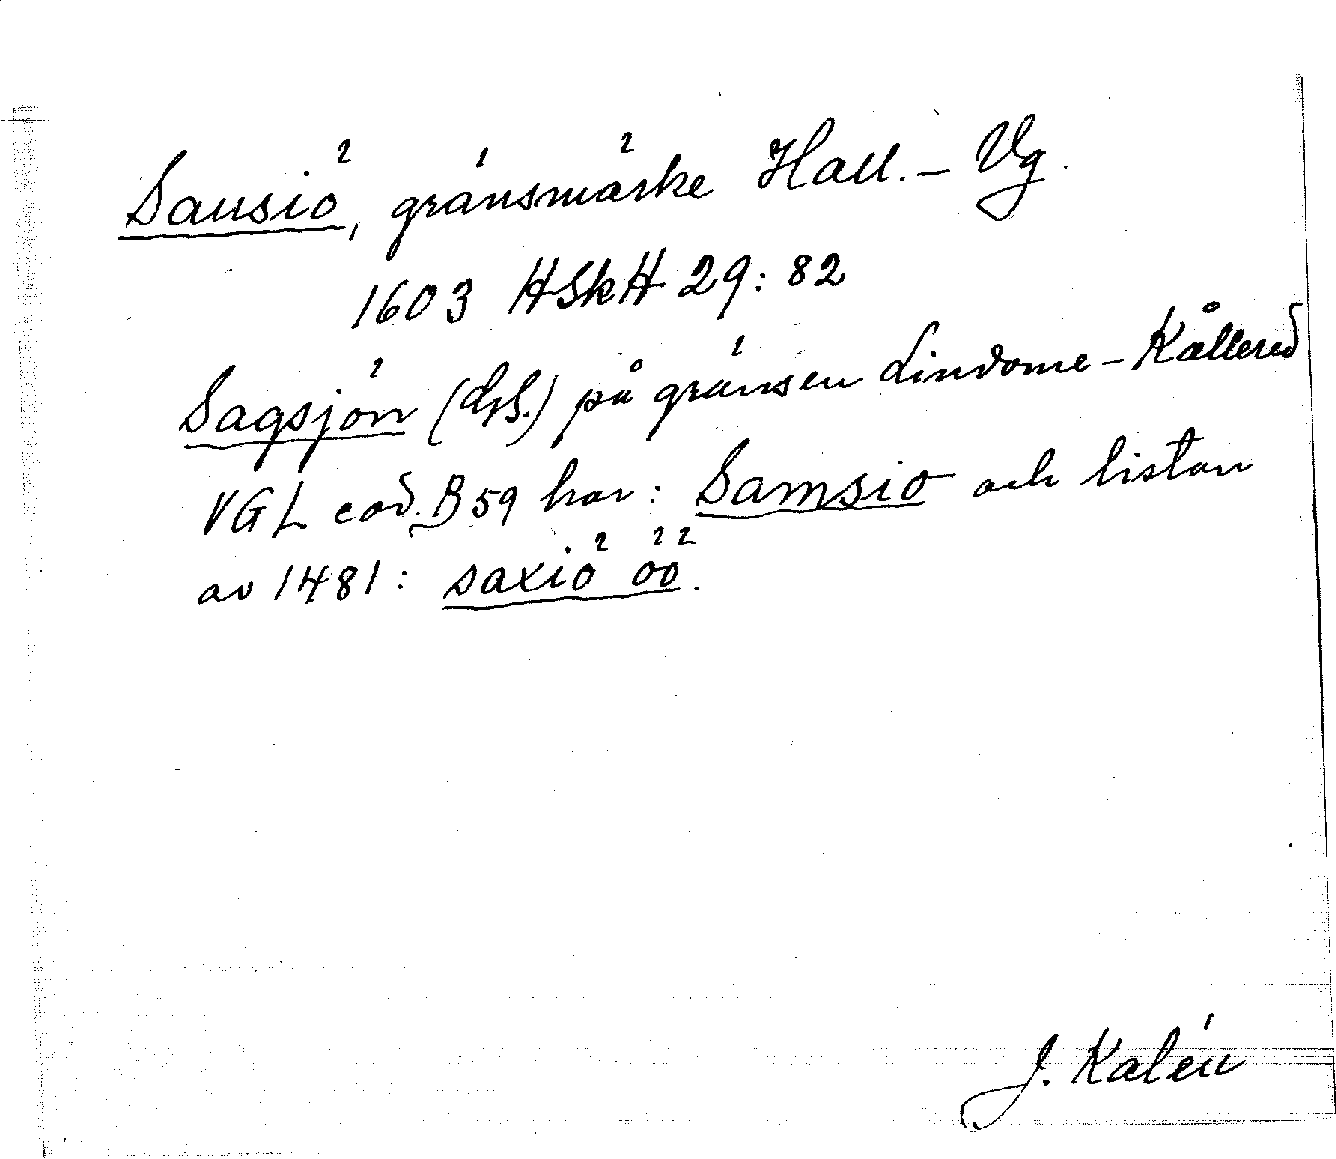 Sausiö, gränsmärke Hall. – Vg.
1603 HSkH 29: 82
Sagsjön (GS.) på gränsen Lindome – Kållered
VGL cod. B 59 har: Samsio och listan
av 1481: saxiö öö.
J. Kalén